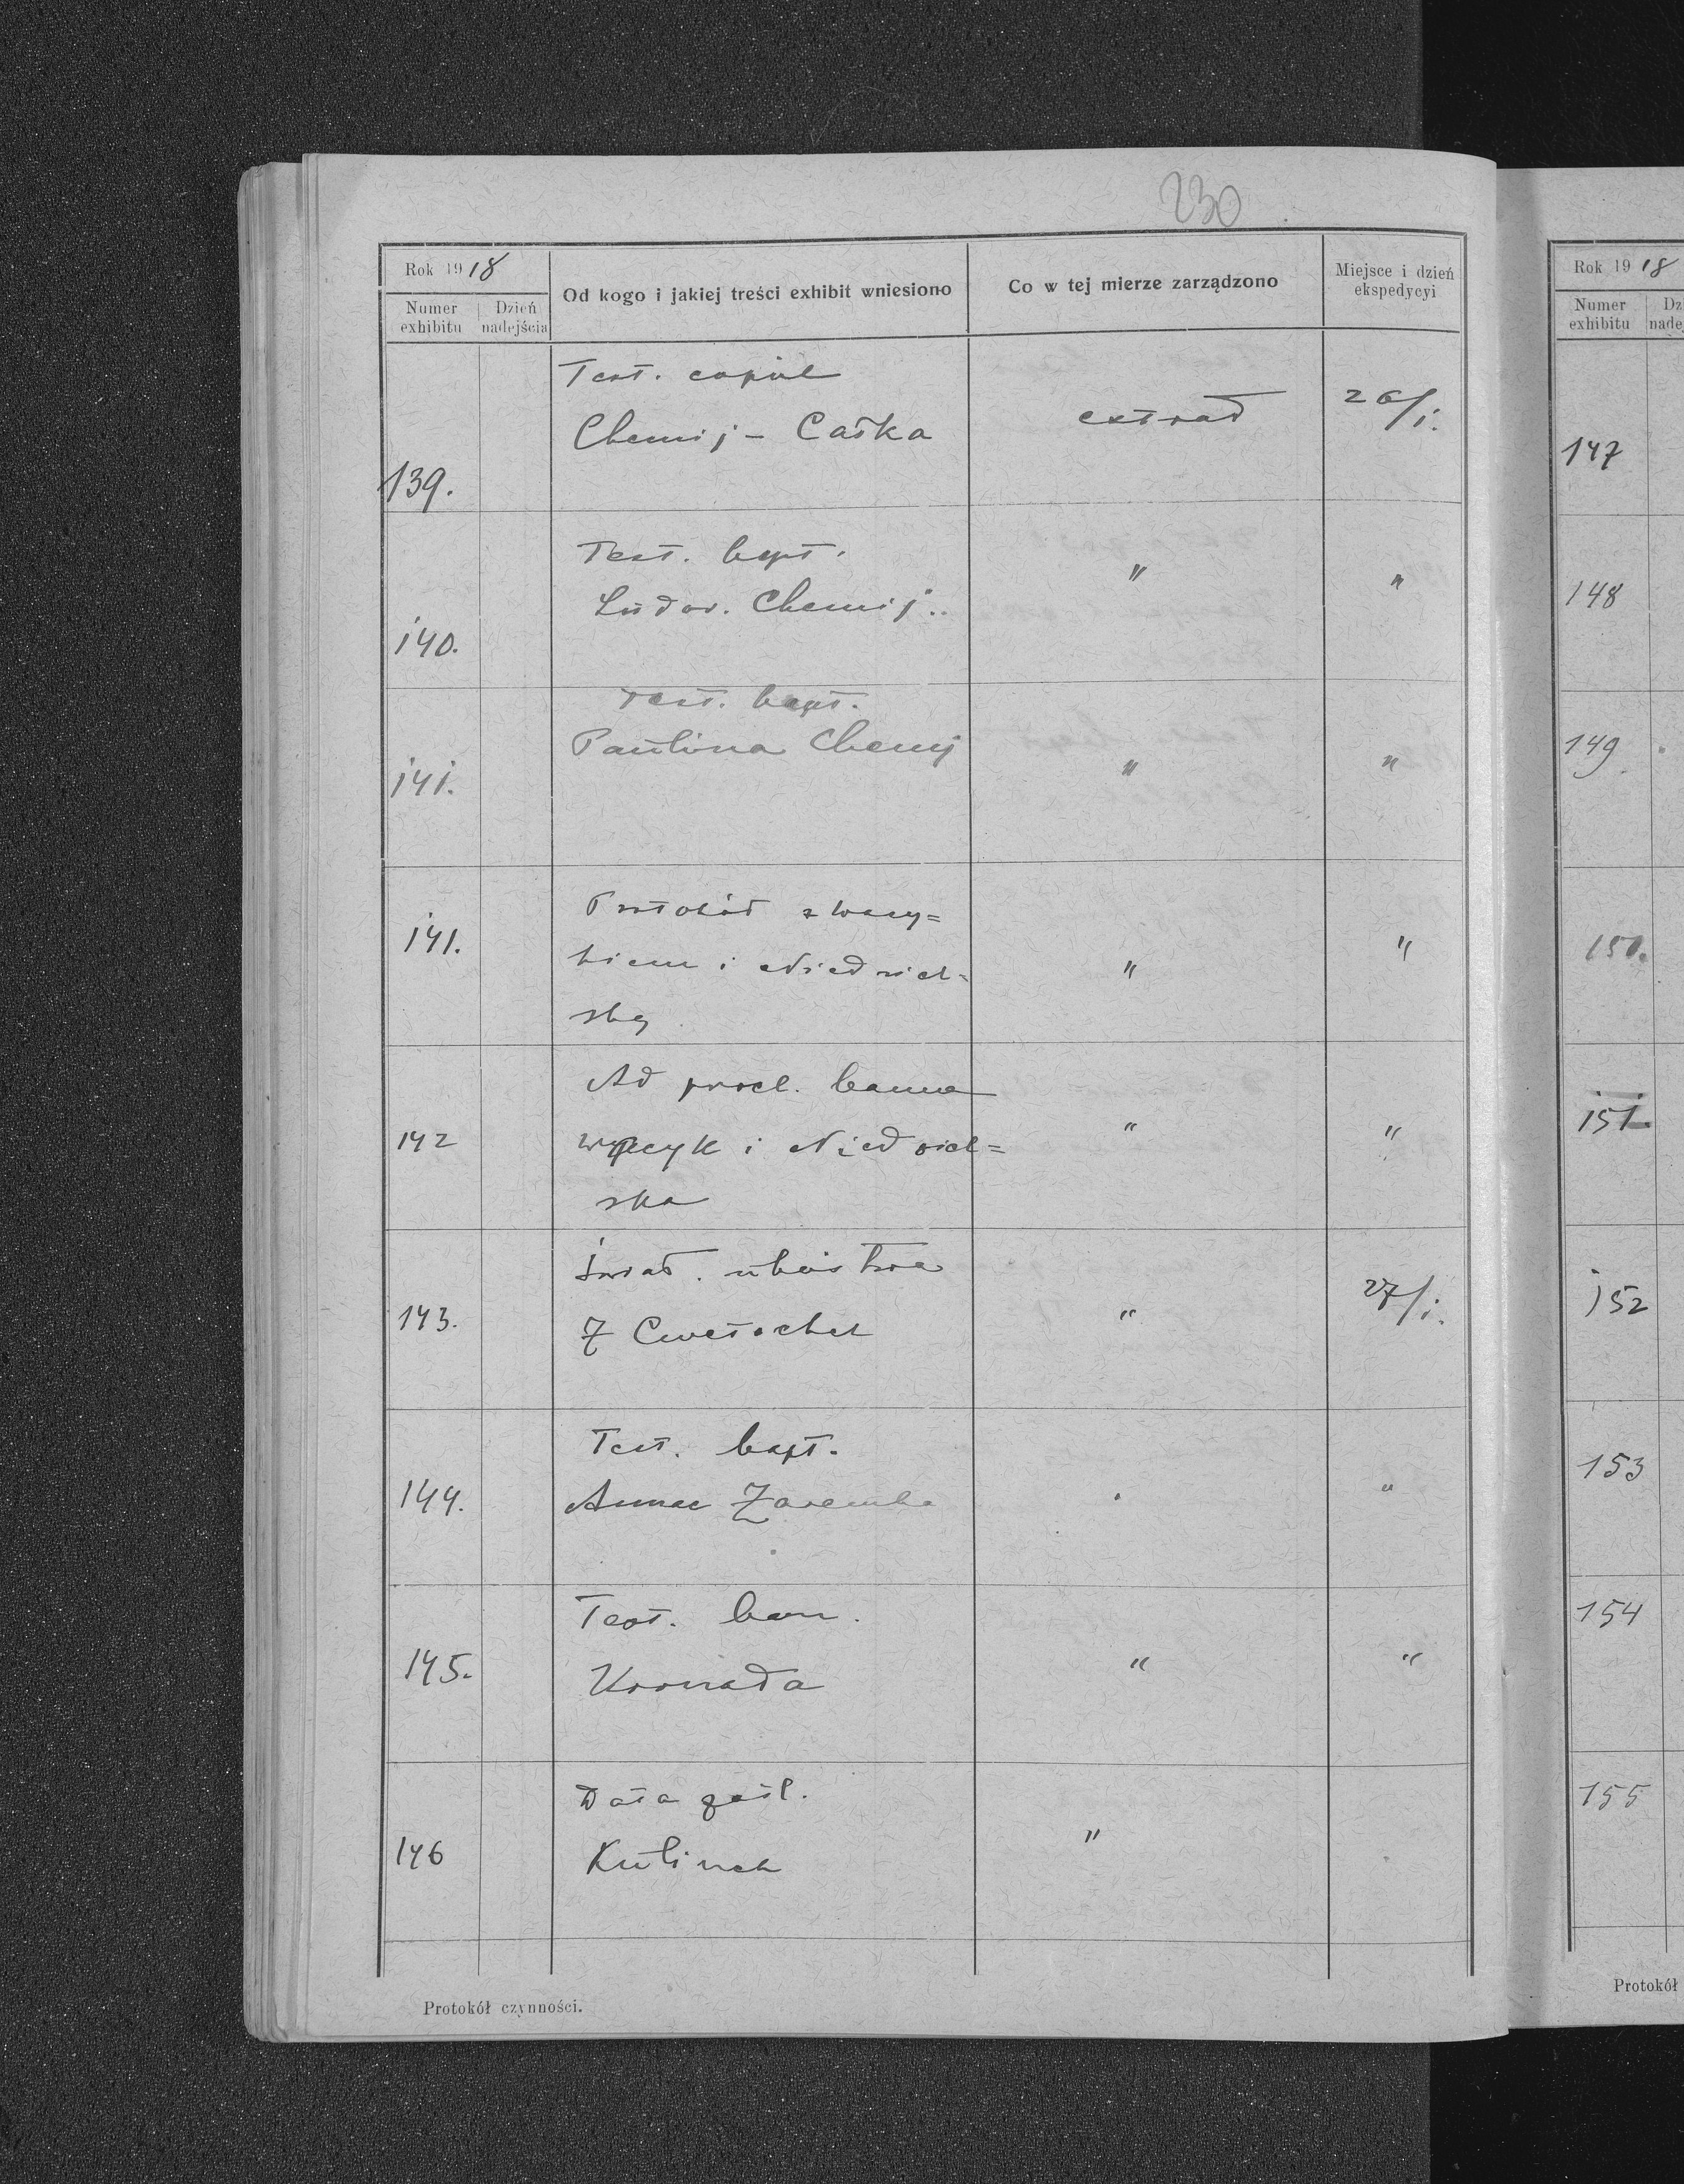 230
Rok 1918
Numer exhibitu
Dzień nadejścia
Od kogo i jakiej treści exhibit wniesiono
Co w tej mierze zarządzono
Miejsce i dzień ekspedycyi
139.
Test. copul
Chemij - Całka
extrad
26/1.
140.
Test. bapt.
Ludov. Chemij..
"
"
141.
Test. bapt.
Paulina Chemij
"
"
141.
Protokół z
kiem i Niedziel=
ską
"
"
142
Ad procl. banna
i Niedziel=
ska
"
"
143.
Świad. ubóstwa
"
27/1.
144.
Test. bapt.
Annae Zaremba
"
145.
Test. bann.
"
"
146
Data
Kulinek
"
Protokół czynności.
Rok 1918
Numer exhibitu
Dz
nadej
147
148
149
150.
151.
152
153
154
155
Protokół